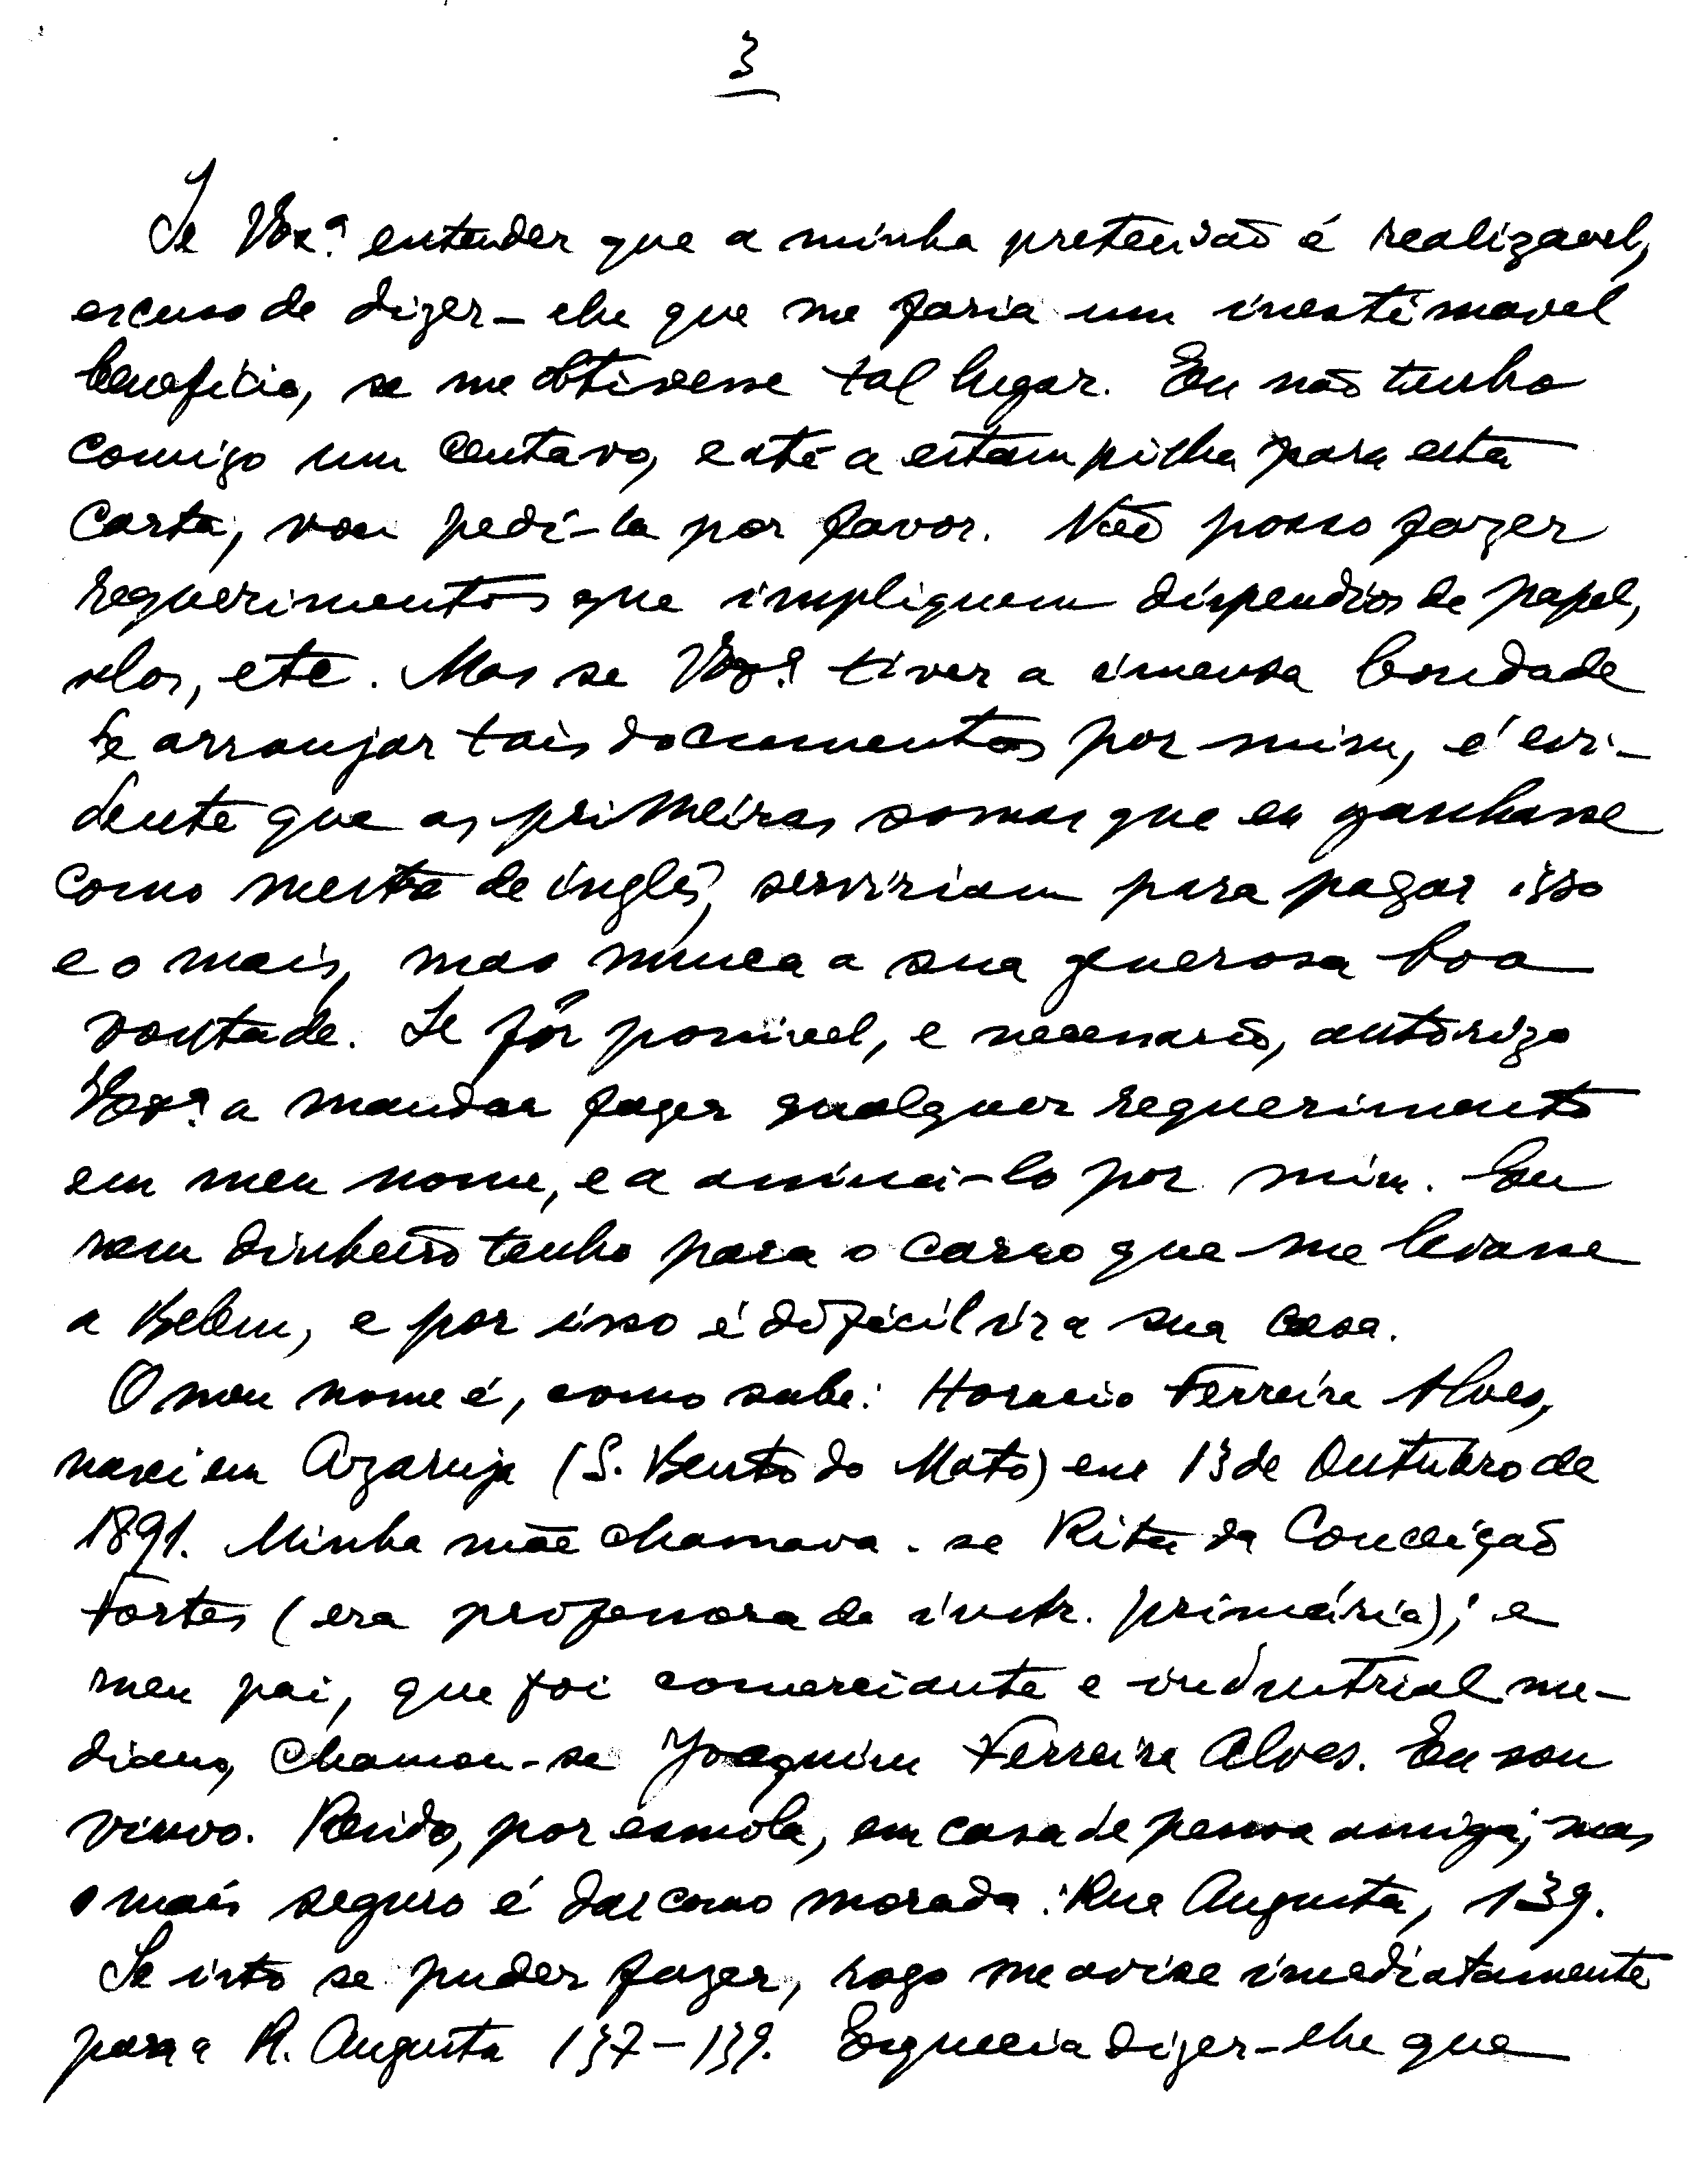 3
Se Vexª entender que a minha pretensão é realizavel,
escuso de dizer-lhe que me faria um inestimavel
beneficio, se me obtivesse tal lugar. Eu não tenho
comigo um centavo, e até a estampilha para esta
carta, vou pedi-la por favor. Não posso fazer
requerimentos que impliquem dispendios de papel,
selos, etc. Mas se Vexª tiver a imensa bondade
de arranjar tais documentos por mim, é evi-
dente que as primeiras somas que eu ganhasse
como mestre de inglês, serviriam para pagar isso
e o mais, mas nunca a sua generosa boa
vontade. Se fôr possivel, e necessario, autorizo
Vexª a mandar fazer qualquer requerimento
em meu nome, e a assiná-lo por mim. Eu
nem dinheiro tenho para o carro que me levasse
a Belem, e por isso é dificil ir a sua casa.
O meu nome é, como sabe: Horacio Ferreira Alves,
nasci em Azaruja (S. Bento do Mato) em 13 de Outubro de
1891. Minha mãe chamava-se Rita da Conceição
Fortes (era professora de instr. primária); e
meu pai, que foi comerciante e industrial me-
diano, chamou-se Joaquim Ferreira Alves. Eu sou
viuvo. Resido, por esmola, em casa de pessoa amiga; mas
o mais seguro é dar como morada: Rua Augusta, 139.
Se isto se puder fazer, rogo me avise imediatamente
para a R. Augusta 137-139. Esquecia dizer-lhe que